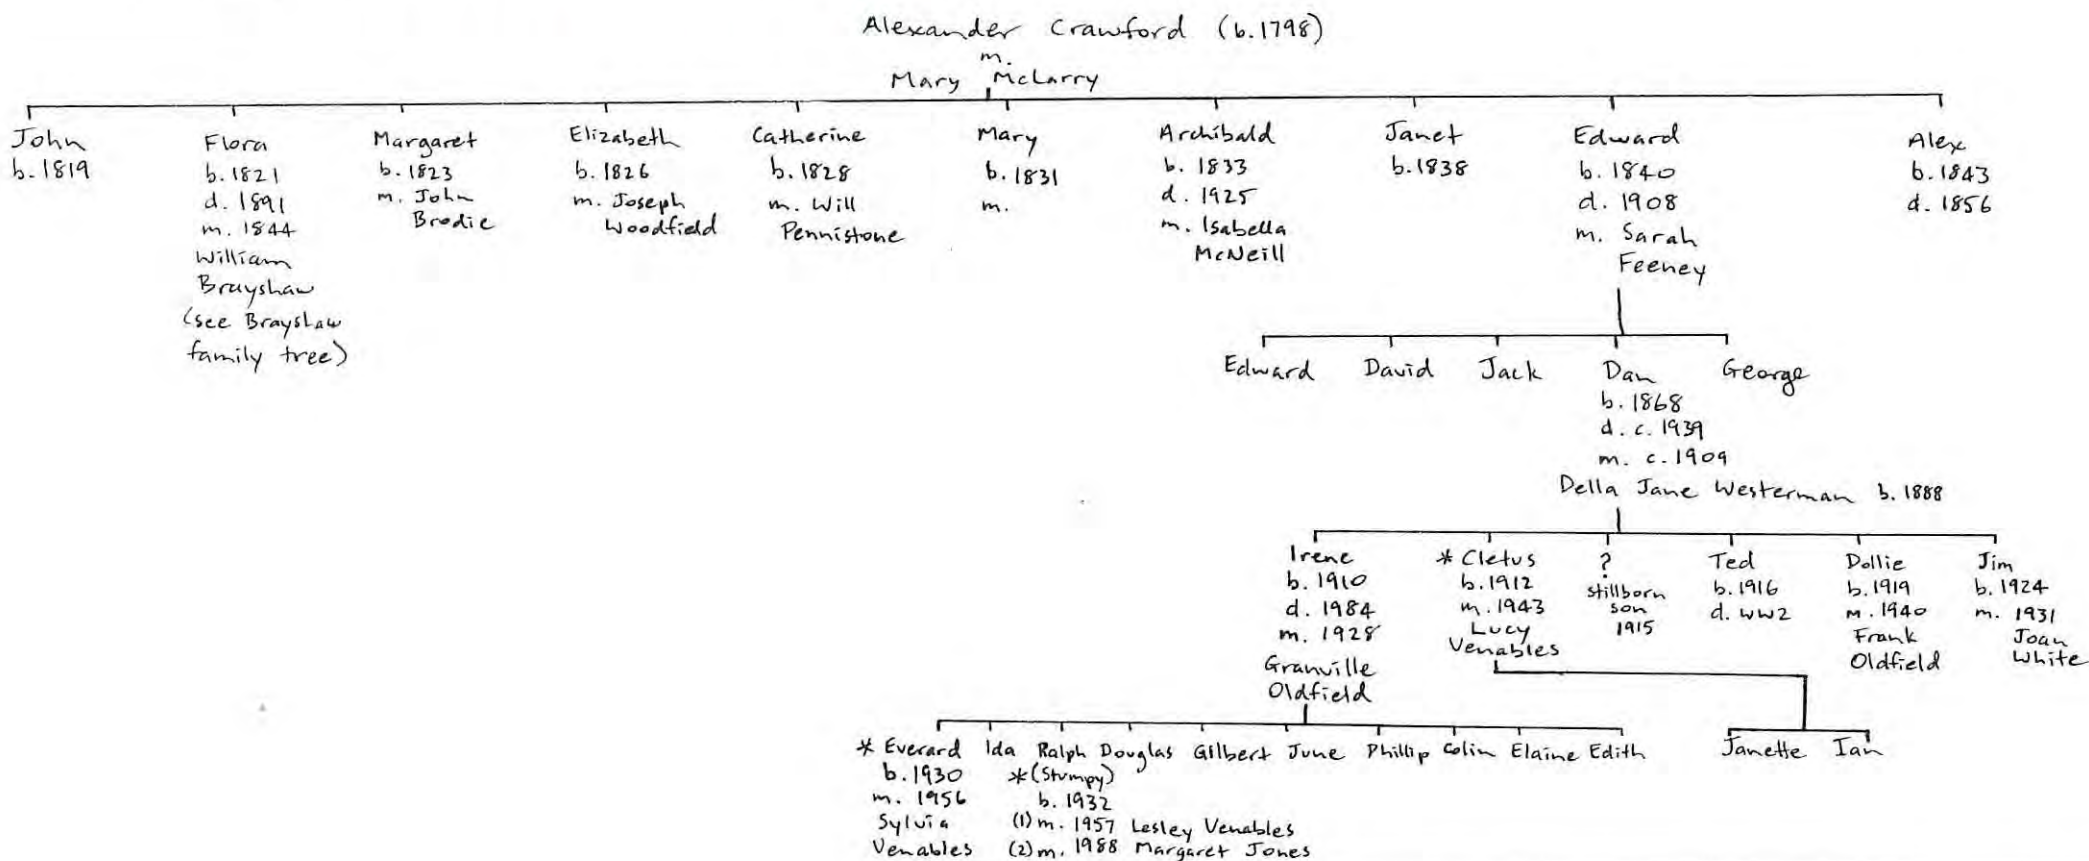 Alexander Crawford (b.1798)
m.
Mary McLarry
John
b. 1819
Flora
b. 1821
d. 1891
m. 1844
William
Brayshaw
(see Brayshaw
family tree)
Margaret
b. 1823
m. John
Brodie
Elizabeth
b. 1826
m. Joseph
Woodfield
Catherine
b. 1828
m. Will
Pennistone
Mary
b. 1831
m.
Archibald
b. 1833
d. 1925
m. Isabella
McNeill
Janet
b. 1838
Edward
b. 1840
d. 1908
m. Sarah
Feeney
Alex
b. 1843
d. 1856
Edward
David
Jack
Dan
b. 1868
d. c. 1939
m. c. 1909
Della Jane Westerman b. 1888
George
Irene
b. 1910
d. 1984
m. 1928
Granville
Oldfield
* Cletus
b. 1912
m. 1943
Lucy
Venables
?
stillborn
son
1915
Ted
b. 1916
d. WW2
Dollie
b. 1919
m. 1940
Frank
Oldfield
Jim
b. 1924
m. 1931
Joan
White
* Everard
b. 1930
m. 1956
Sylvia
Venables
Ida
Ralph
* (Stumpy)
b. 1932
(1) m. 1957 Lesley Venables
(2) m. 1988 Margaret Jones
Douglas
Gilbert
June
Phillip
Colin
Elaine
Edith
Janette
Ian